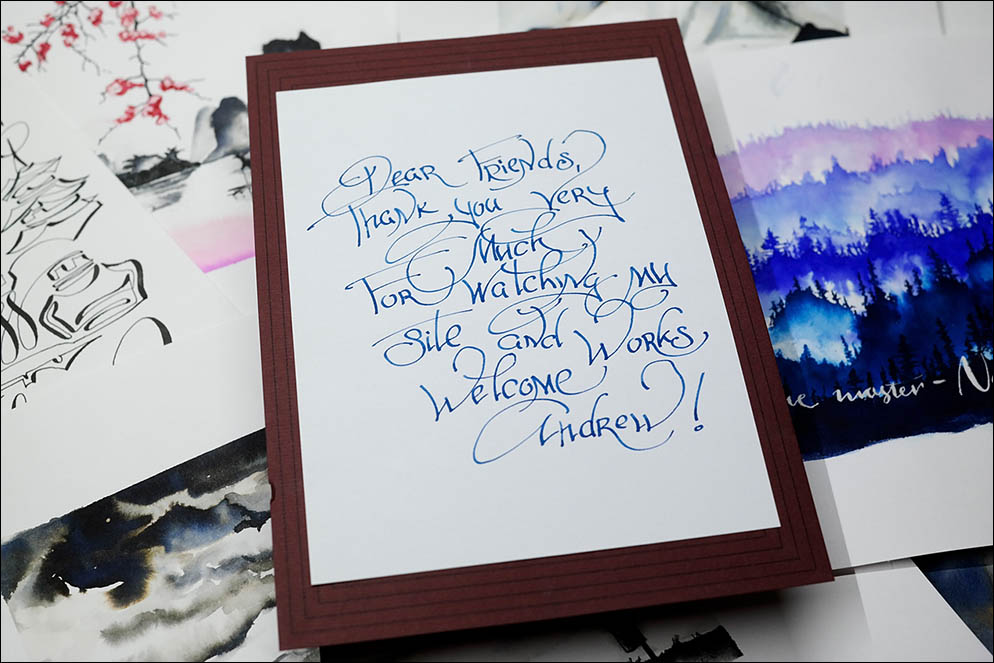 Dear Friends,
Thank you very
Much
For watching my
site and Works,
Welcome
Andrew!
master - N